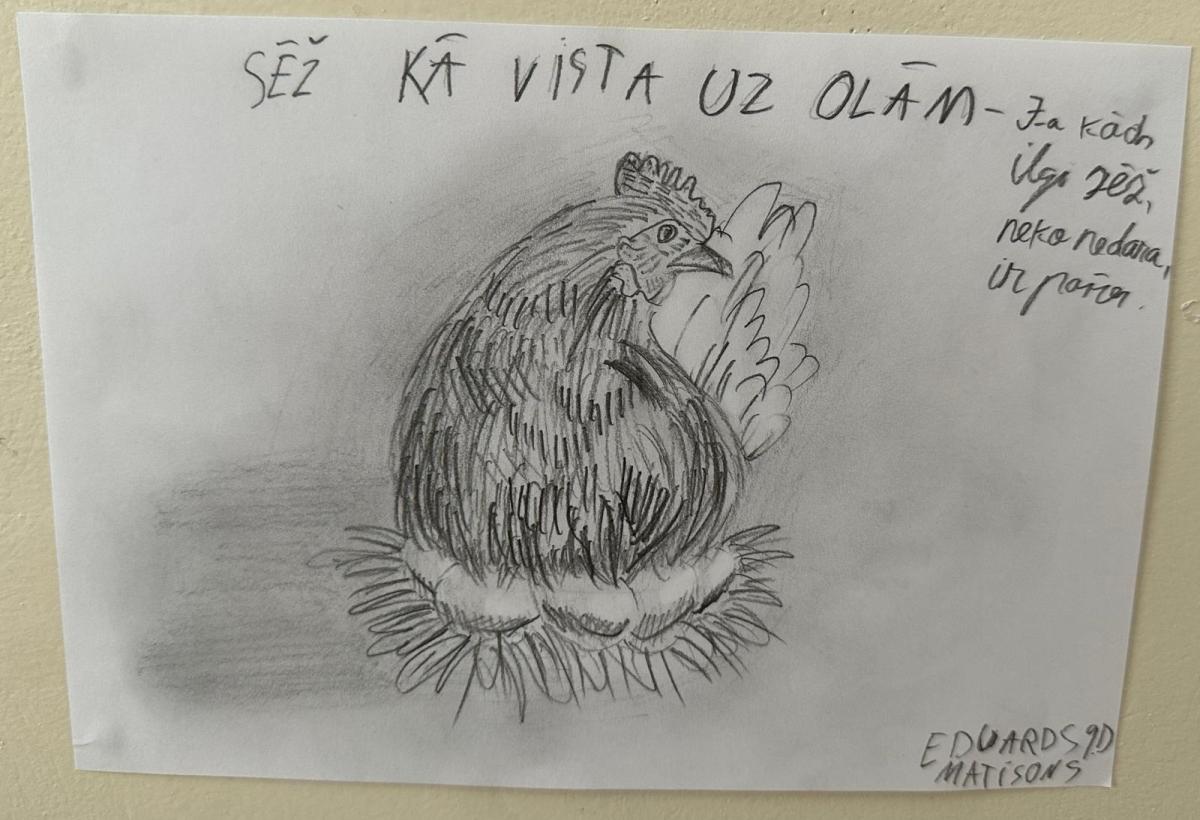 SĒŽ KĀ VISTA UZ OLĀM - Ja kāds
ilgi sēž,
neko nedara,
ir
EDUARDS 9D
MATISONS